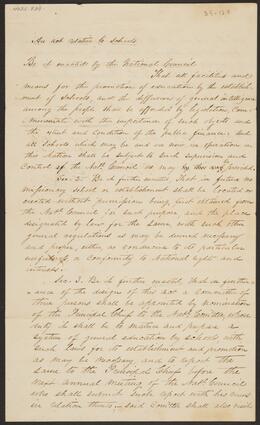 An act relative to schools
Be it enacted by the National Council
That all facilities and
means for the promotion of education by the establish-
ment of Schools, and the diffusion of general intelligence
among the people shall be afforded by legislation, Com-
mensurate with the importance of such objects and
the extent and condition of the public finances; and
all Schools which may be and are now in operation in
this Nation shall be subject to such supervision and
Control of the Natl Council as may be provided.
Sec. 2. Be it further enacted, That in future no
missionary school or establishment shall be located or
erected without permission being first obtained from
the Natl Council for such purpose and the place
designated by law for the same with such other
general regulations as may be deemed necessary
and proper, either as conducive to its particular
usefulness or a Conformity to National rights and
interests.
Sec. 3. Be it further enacted, that in further-
ance of the designs of this act a Committee of
three persons shall be appointed by nomination
of the Principal Chief to the Natl Comittee whose
duty it shall be to mature and prepare a
system of general education by schools with
such laws for its establishment and promotion
as may be necessary, and to report the
same to the Principal Chief before the
next Annual Meeting of the Natl Council
who shall submit such report with his views
in relation thereto, said Comtte shall also